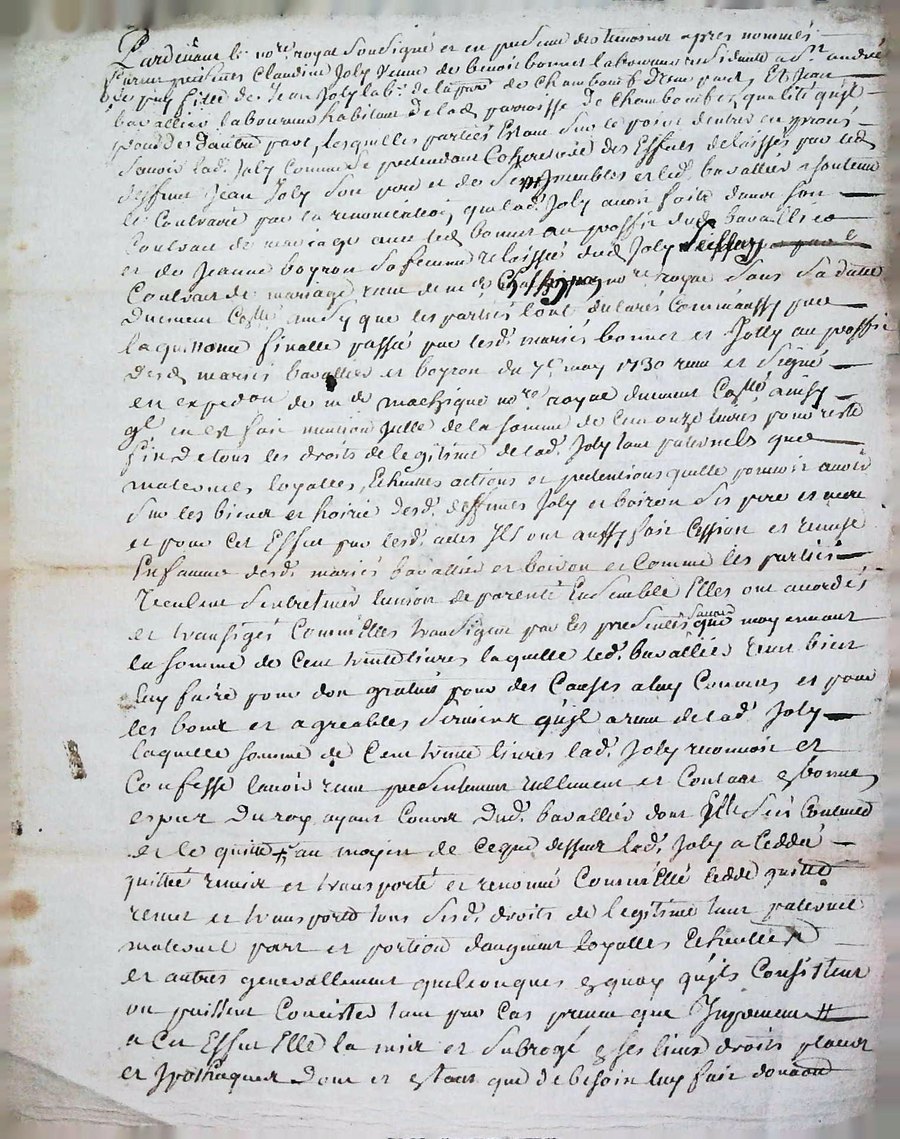 Pardevant le no.re royal sousigné et en presence des temoins apres nommés
furent presents Claudine Joly veuve de benoit bonnet laboureur residante a st andré
le puy fille de Jean Joly lab.r de la par. de Chambœuf d'une part, Et Jean
bavallier laboureur habitant de lad. parroisse de Chambœuf en qualité qu'jl
procede d'autre part, lesquelles parties Estant sur le point dentrer en procés
Scavoir lad. Joly comme pretendant des Effets delaissés par led.
deffunt Jean Joly son pere et de ses meubles et led. bavallier a soutenu
le contraire par la renonciation que lad. Joly avoit faite dans son
contrat de mariage avec led. bonnet au proffit dud. bavallier
et de Jeanne boyron sa femme relaissée dud. Joly
Contrat de mariage receu de me no.re royal sous sa datte
Duement Coll.é ainsy que les parties l'ont declaré comm'aussy par
la quittance finalle passée par lesd. mariés bonnet et Jolly au proffit
desd. mariés bavallier et boyron du 7.e may 1730 receu et signé
en expedon de me no.re royal duement Collé ainsy
ql en est fait mention Jcelle de la somme de cent onze livres pour reste
fin de tous les droits de legitime de lad. Joly tant paternels que
maternels loyalles, Echeuttes actions et pretentions qu'elle pourroit avoir
sur les biens et hoirie desd. deffunts Joly et boiron ses pere et mere
et pour cet Effet par lesd. actes Jls ont aussy fait Cession et remise
En faveur desd. mariés bavallier et boiron et comme les parties
veulent s'entretenir l'union de parenté Ensemble Elles ont accordés
et transigés comm'elles transigent par les presentes scavoir que moyennant
la somme de cent trente livres laquelle led. bavallier veut bien
luy faire pour don gratuit pour des causes a luy connues et pour
les bons et agreables services qu'jl a receu de lad. Joly
laquelle somme de Cent trente livres lad. Joly reconnoit et
Confesse l'avoir receu presentement reellement et contant en bonnes
especes du roy ayant cours dud. bavallier dont Elle s'est contentée
et le quitte + au moyen de ce que dessus lad. Joly a ceddé
quitté remis et transporté et renoncé comm'elle cedde quitte
remet et transporte tous sesd. droits de legitime tant paternel
maternel part et portion d'augment loyalles Echeuttes
et autres generallement quelconques en quoy qu'jls consistent
ou puissent concister tant par cas preveu que Jnopineux
a cet Effet Elle l'a mis et subrogé en ses lieux droits places
et Jpotheques dont et en tant que de besoin luy fait donnaon